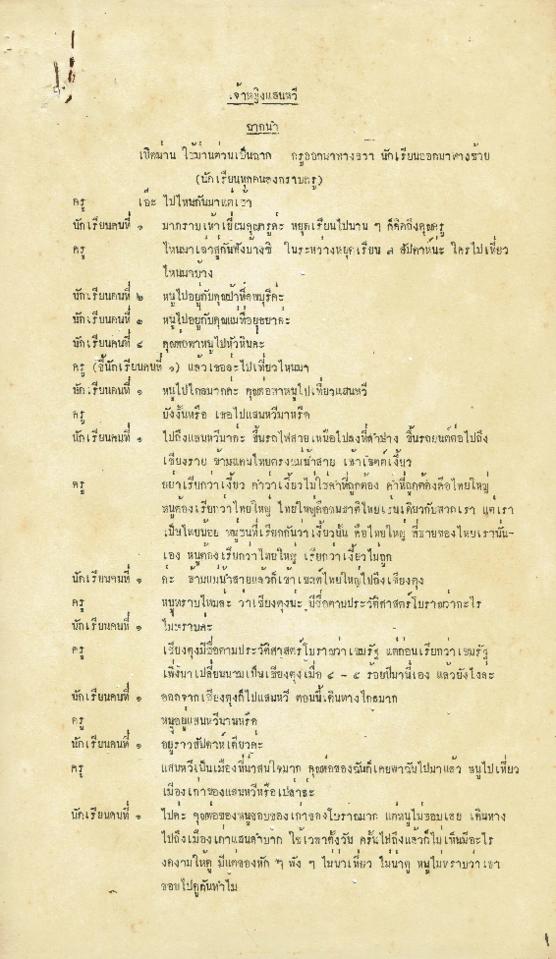 เจ้าหญิงแสนหวี
ฉากนำ
เปิดม่าน ใช้ม่านต่วนเป็นฉาก ครูออกมาทางขวา นักเรียนออกมาทางซ้าย
(นักเรียนทุกคนลงกราบครู)
ครู เอ๊ะ ไปไหนกันมาแต่เรา
นักเรียนคนที่ ๑ มากราบเท้าเยี่ยมคุณครูค่ะ หยุดเรียนไปนาน ๆ ก็คิดถึงคุณครู
ครู ไหนมาเล่าสู่กันฟังบ้างซิ ในระหว่างหยุดเรียน ๓ สัปดาห์น่ะ ใครไปเที่ยว
ไหนมาบ้าง
นักเรียนคนที่ ๒ หนูไปอยู่กับคุณป้าที่ลพบุรีค่ะ
นักเรียนคนที่ ๓ หนูไปอยู่กับคุณแม่ที่อยุธยาค่ะ
นักเรียนคนที่ ๔ คุณพ่อพาหนูไปหัวหินค่ะ
ครู (ชี้นักเรียนคนที่ ๑) แล้วเธอล่ะไปเที่ยวไหนมา
นักเรียนคนที่ ๑ หนูไปไกลมากค่ะ คุณพ่อพาหนูไปเที่ยวแสนหวี
ครู ยังงั้นหรือ เธอไปแสนหวีมาหรือ
นักเรียนคนที่ ๑ ไปถึงแสนหวีมาค่ะ ขึ้นรถไฟสายเหนือไปลงที่ลำปาง ขึ้นรถยนต์ต่อไปถึง
เชียงราย ข้ามแดนไทยตรงแม่น้ำสาย เข้าเขตต์เงี้ยว
ครู อย่าเรียกว่าเงี้ยว คำว่าเงี้ยวไม่ใช่คำที่ถูกต้อง คำที่ถูกต้องคือไทยใหญ่
หนูต้องเรียกว่าไทยใหญ่ ไทยใหญ่คือชนชาติไทยเช่นเดียวกับพวกเรา แต่เรา
เป็นไทยน้อย หมู่ชนที่เรียกกันว่าเงี้ยวนั้น คือไทยใหญ่ พี่ชายของไทยเรานั่น-
เอง หนูต้องเรียกว่าไทยใหญ่ เรียกว่าเงี้ยวไม่ถูก
นักเรียนคนที่ ๑ ค่ะ ข้ามแม่น้ำสายแล้วก็เข้าเขตต์ไทยใหญ่ไปถึงเชียงตุง
ครู หนูทราบไหมล่ะ ว่าเชียงตุงน่ะ มีชื่อตามประวัติศาสตร์โบราณว่ากะไร
นักเรียนคนที่ ๑ ไม่ทราบค่ะ
ครู เชียงตุงมีชื่อตามประวัติศาสตร์โบราณว่าเขมรัฐ แต่ก่อนเรียกว่าเขมรัฐ
เพิ่งมาเปลี่ยนนามเป็นเชียงตุงเมื่อ ๔ - ๕ ร้อยปีมานี้เอง แล้วยังไงล่ะ
นักเรียนคนที่ ๑ ออกจากเชียงตุงก็ไปแสนหวี ตอนนี้เดินทางไกลมาก
ครู หนูอยู่แสนหวีนานหรือ
นักเรียนคนที่ ๑ อยู่ราวสัปดาห์เดียวค่ะ
ครู แสนหวีเป็นเมืองที่น่าสนใจมาก คุณพ่อของฉันก็เคยพาฉันไปมาแล้ว หนูไปเที่ยว
เมืองเก่าของแสนหวีหรือเปล่าล่ะ
นักเรียนคนที่ ๑ ไปค่ะ คุณพ่อของหนูชอบของเก่าของโบราณมาก แต่หนูไม่ชอบเลย เดินทาง
ไปถึงเมืองเก่าแสนลำบาก ใช้เวลาตั้งวัน ครั้นไปถึงแล้วก็ไม่เห็นมีอะไร
งดงามให้ดู มีแต่ของหัก ๆ พัง ๆ ไม่น่าเที่ยว ไม่น่าดู หนูไม่ทราบว่าเขา
ชอบไปดูกันทำไม